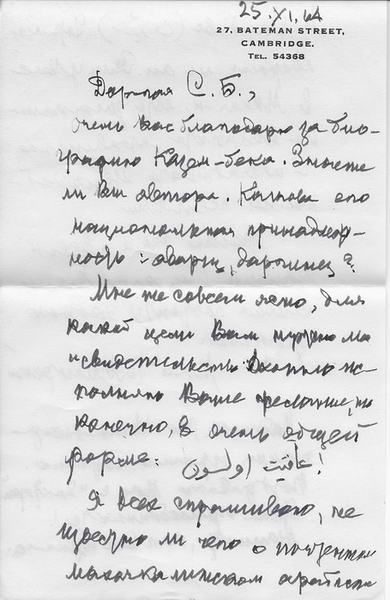 25.XI.64
27, BATEMAN STREET,
CAMBRIDGE.
TEL. 54368
Дорогая С.Б.,
очень Вас благодарю за био-
графию Казем-бека. Знаете
ли Вы автора. Какова его
национальная принадлеж-
ность: аварец, даргинец?
Мне не совсем ясно, для
какой цели Вам нужно мое
свидетельство. Охотно ис
полняю Ваше
конечно, в очень общей
форме: عاقبت اولسون!
Я всех спрашиваю, не
известно ли чего о почтенном
махачкалинском арабисте